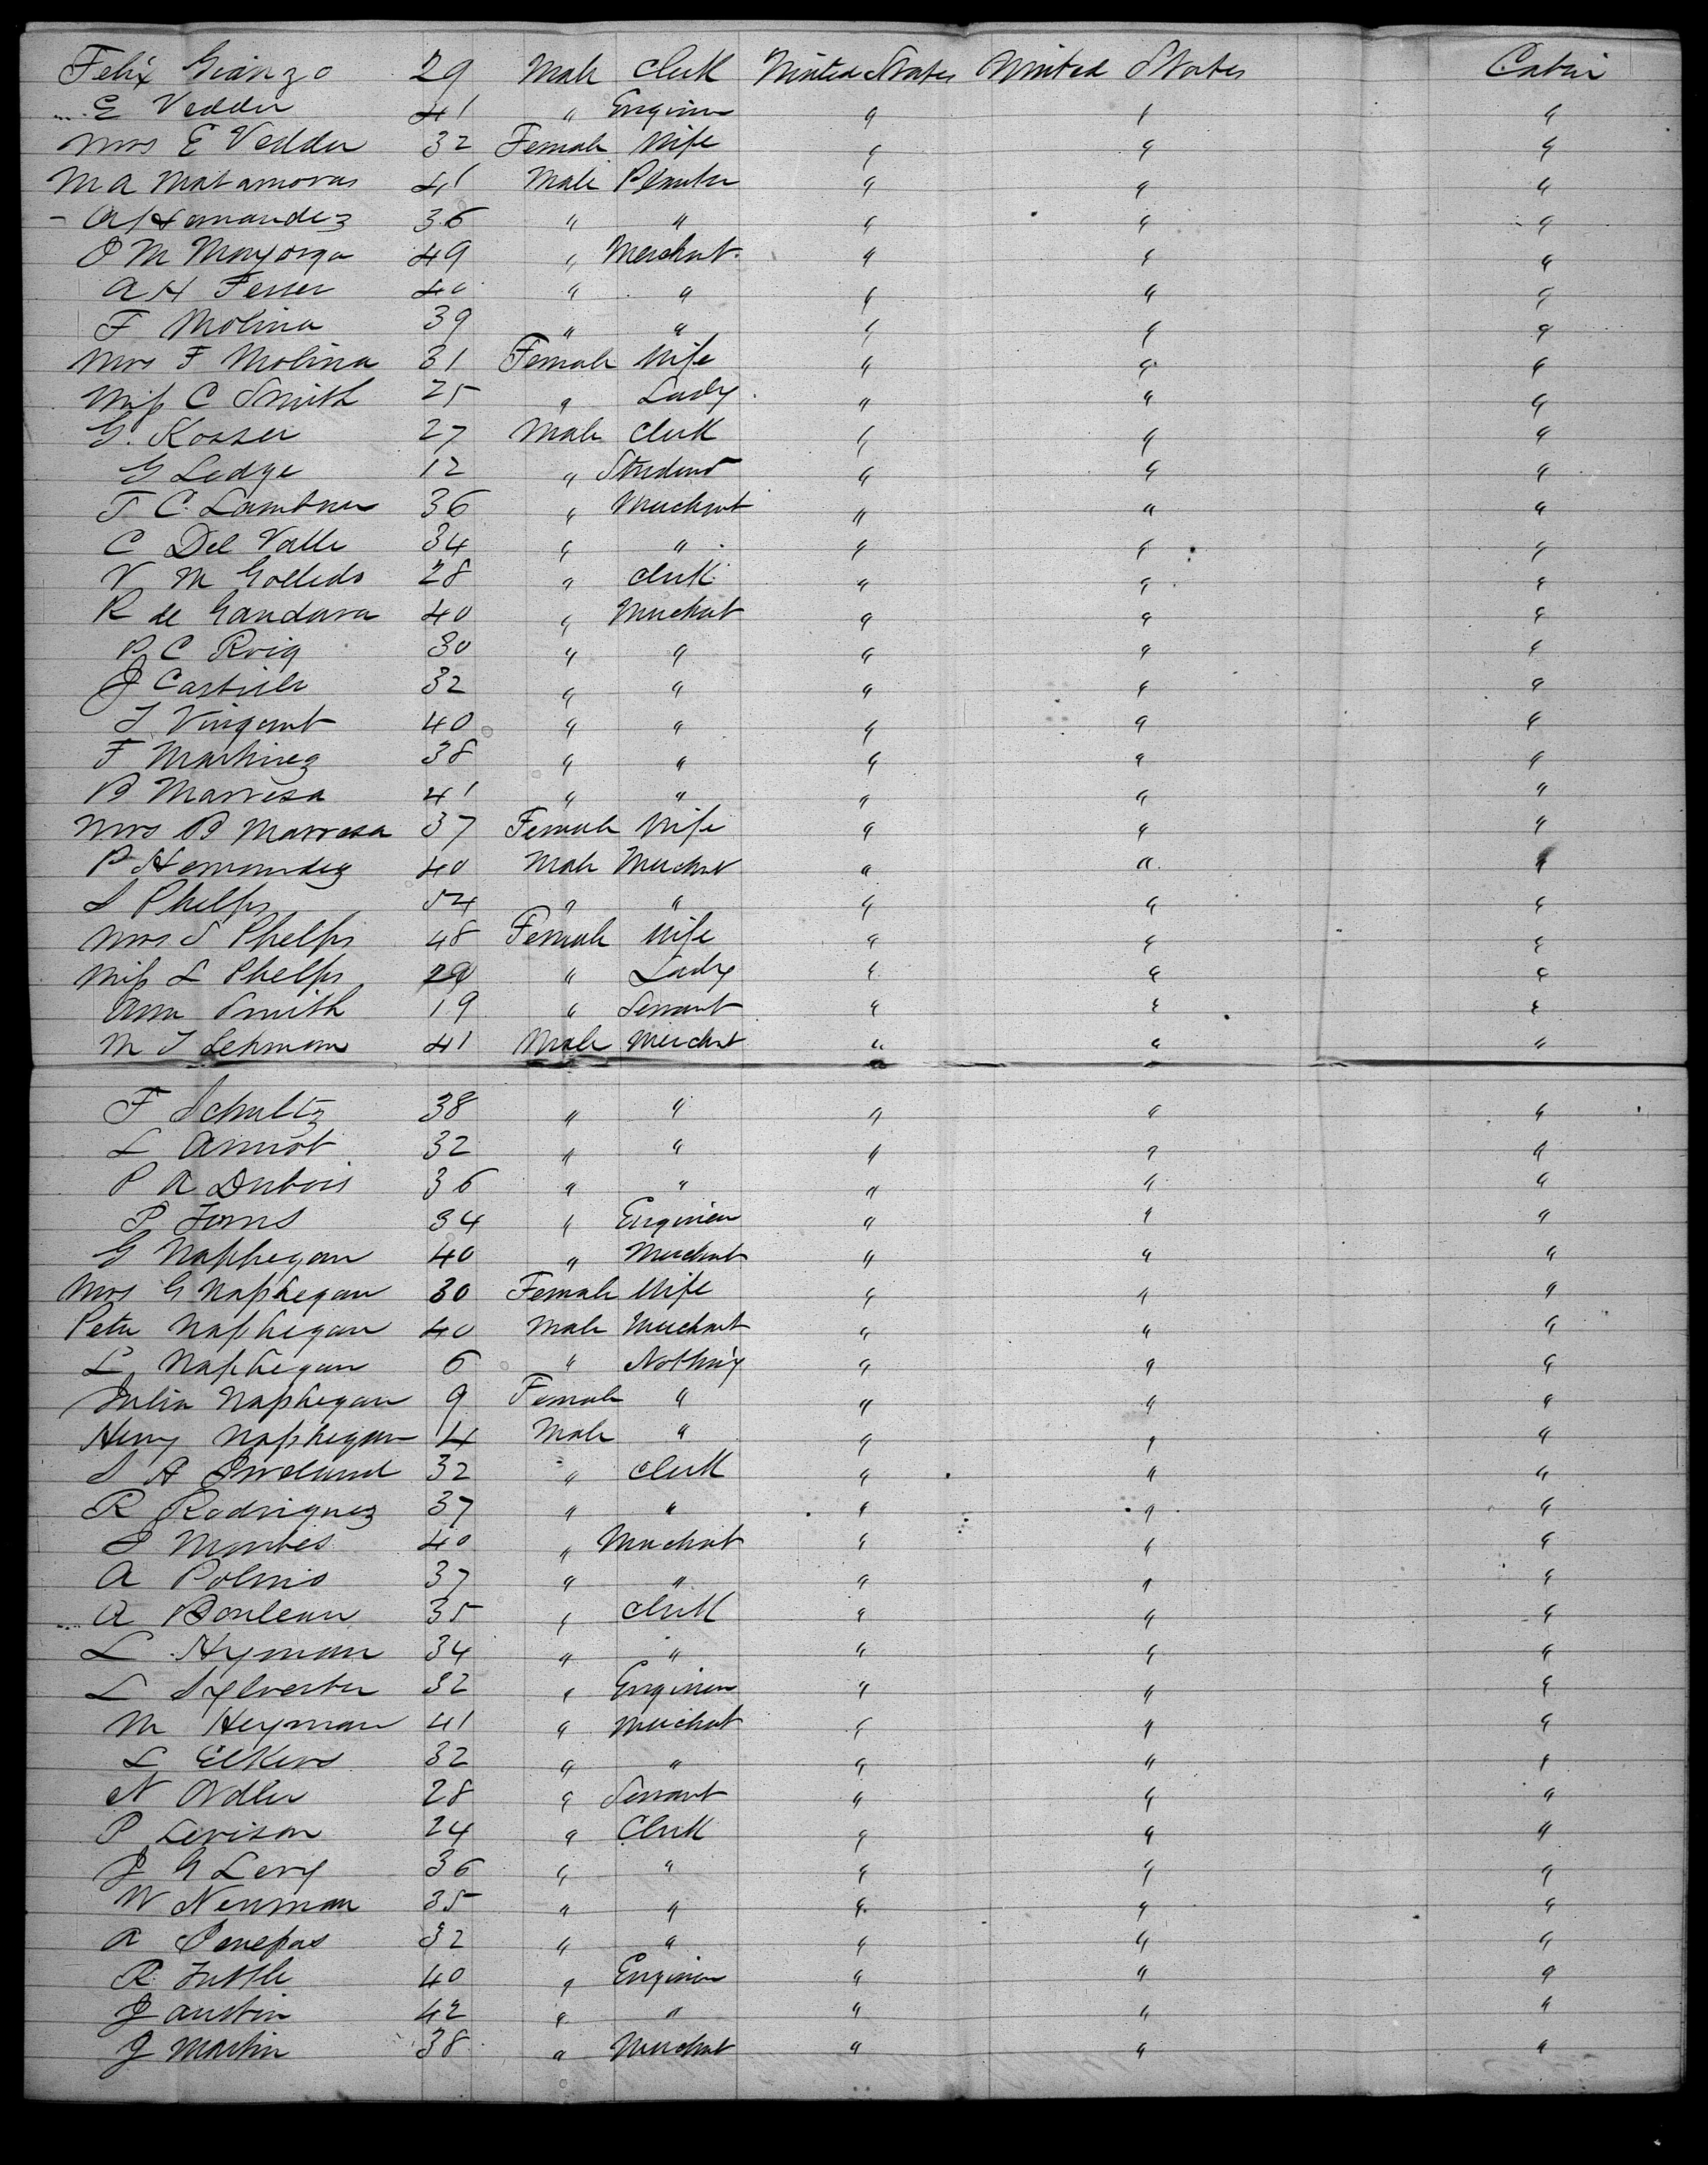 Felix Gianzo 29 Male Clerk United States United States Cabin
E Vedder 41 " Engineer " " "
Mrs E Vedder 32 Female Wife " " "
M A Matamoras 41 Male Planter " " "
A Hernandez 36 " " " " "
J M Mayorga 49 " Merchant " " "
A H Ferrer 40 " " " " "
F Molina 39 " " " " "
Mrs F Molina 31 Female Wife " " "
Miss C Smith 25 " Lady " " "
G. Kosser 27 Male Clerk " " "
G Ledge 12 " Student " " "
T C 36 " Merchant " " "
C Del Valle 34 " " " " "
V M Golledo 28 " Clerk " " "
R de Gandara 40 " Merchant " " "
P C Roig 30 " " " " "
J Castillo 32 " " " " "
J Vingent 40 " " " " "
F Martinez 38 " " " " "
B Marresa 41 " " " " "
Mrs B Marresa 37 Female Wife " " "
P Hernandez 40 Male Merchant " " "
S Phelps 54 " " " " "
Mrs S Phelps 48 Female Wife " " "
Miss L Phelps 29 " Lady " " "
Ann Smith 19 " Servant " " "
M J Lehman 41 Male Merchant " " "
F Schultz 38 " " " " "
L Amiot 32 " " " " "
P A Dubois 36 " " " " "
P 34 " Engineer " " "
G Naphegan 40 " Merchant " " "
Mrs G Naphegan 30 Female Wife " " "
Peter Naphegan 40 Male Merchant " " "
L Naphegan 6 " Nothing " " "
Julia Naphegan 9 Female " " " "
Henry Naphegan 14 Male " " " "
S A 32 " Clerk " " "
R Rodriguez 37 " " " " "
J Montes 40 " Merchant " " "
A Polnio 37 " " " " "
A Bouleau 35 " Clerk " " "
L Hyman 34 " " " " "
L Sylvester 32 " Engineer " " "
M Heyman 41 " Merchant " " "
L Elkins 32 " " " " "
N Adler 28 " Servant " " "
P Levison 24 " Clerk " " "
J G Levy 36 " " " " "
W Neuman 35 " " " " "
A 32 " " " " "
R Tuttle 40 " Engineer " " "
J Austin 42 " " " " "
J Martin 38 " Merchant " " "